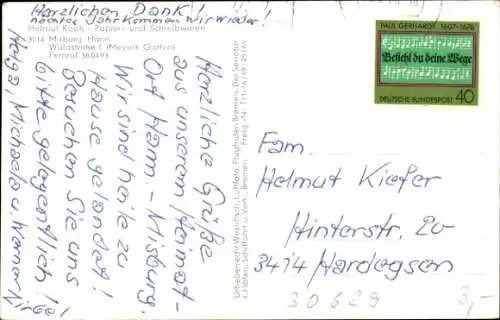 Herzlichen Dank!
nächstes Jahr kommen wir wieder!
Helmut Kook - Papier- und Schreibwaren
3014 Misburg Hann.
Waldstraße 1 (Meyers Garten)
Fernruf 560493
Herzliche Grüße
aus unserem Heimat-
Ort Hann.-Misburg.
Wir sind heile zu
Hause gelandet!
Besuchen Sie uns
bitte gelegentlich!
Helga, Michaela u. Werner
PAUL GERHARDT 1607-1676
Befiehl du deine Wege
DEUTSCHE BUNDESPOST 40
Fam.
Helmut Kiefer
Hinterstr. 20
3414 Hardegsen
30629
3,-